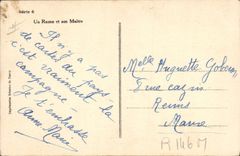 Série 6
Un Rusno et son Maître
Il n'y a pas
de cartes du pays
c'est vraiment la
campagne
Je t'embrasse
Anne Marie
Melle Huguette
2 rue
Reims
Marne
R 146 M